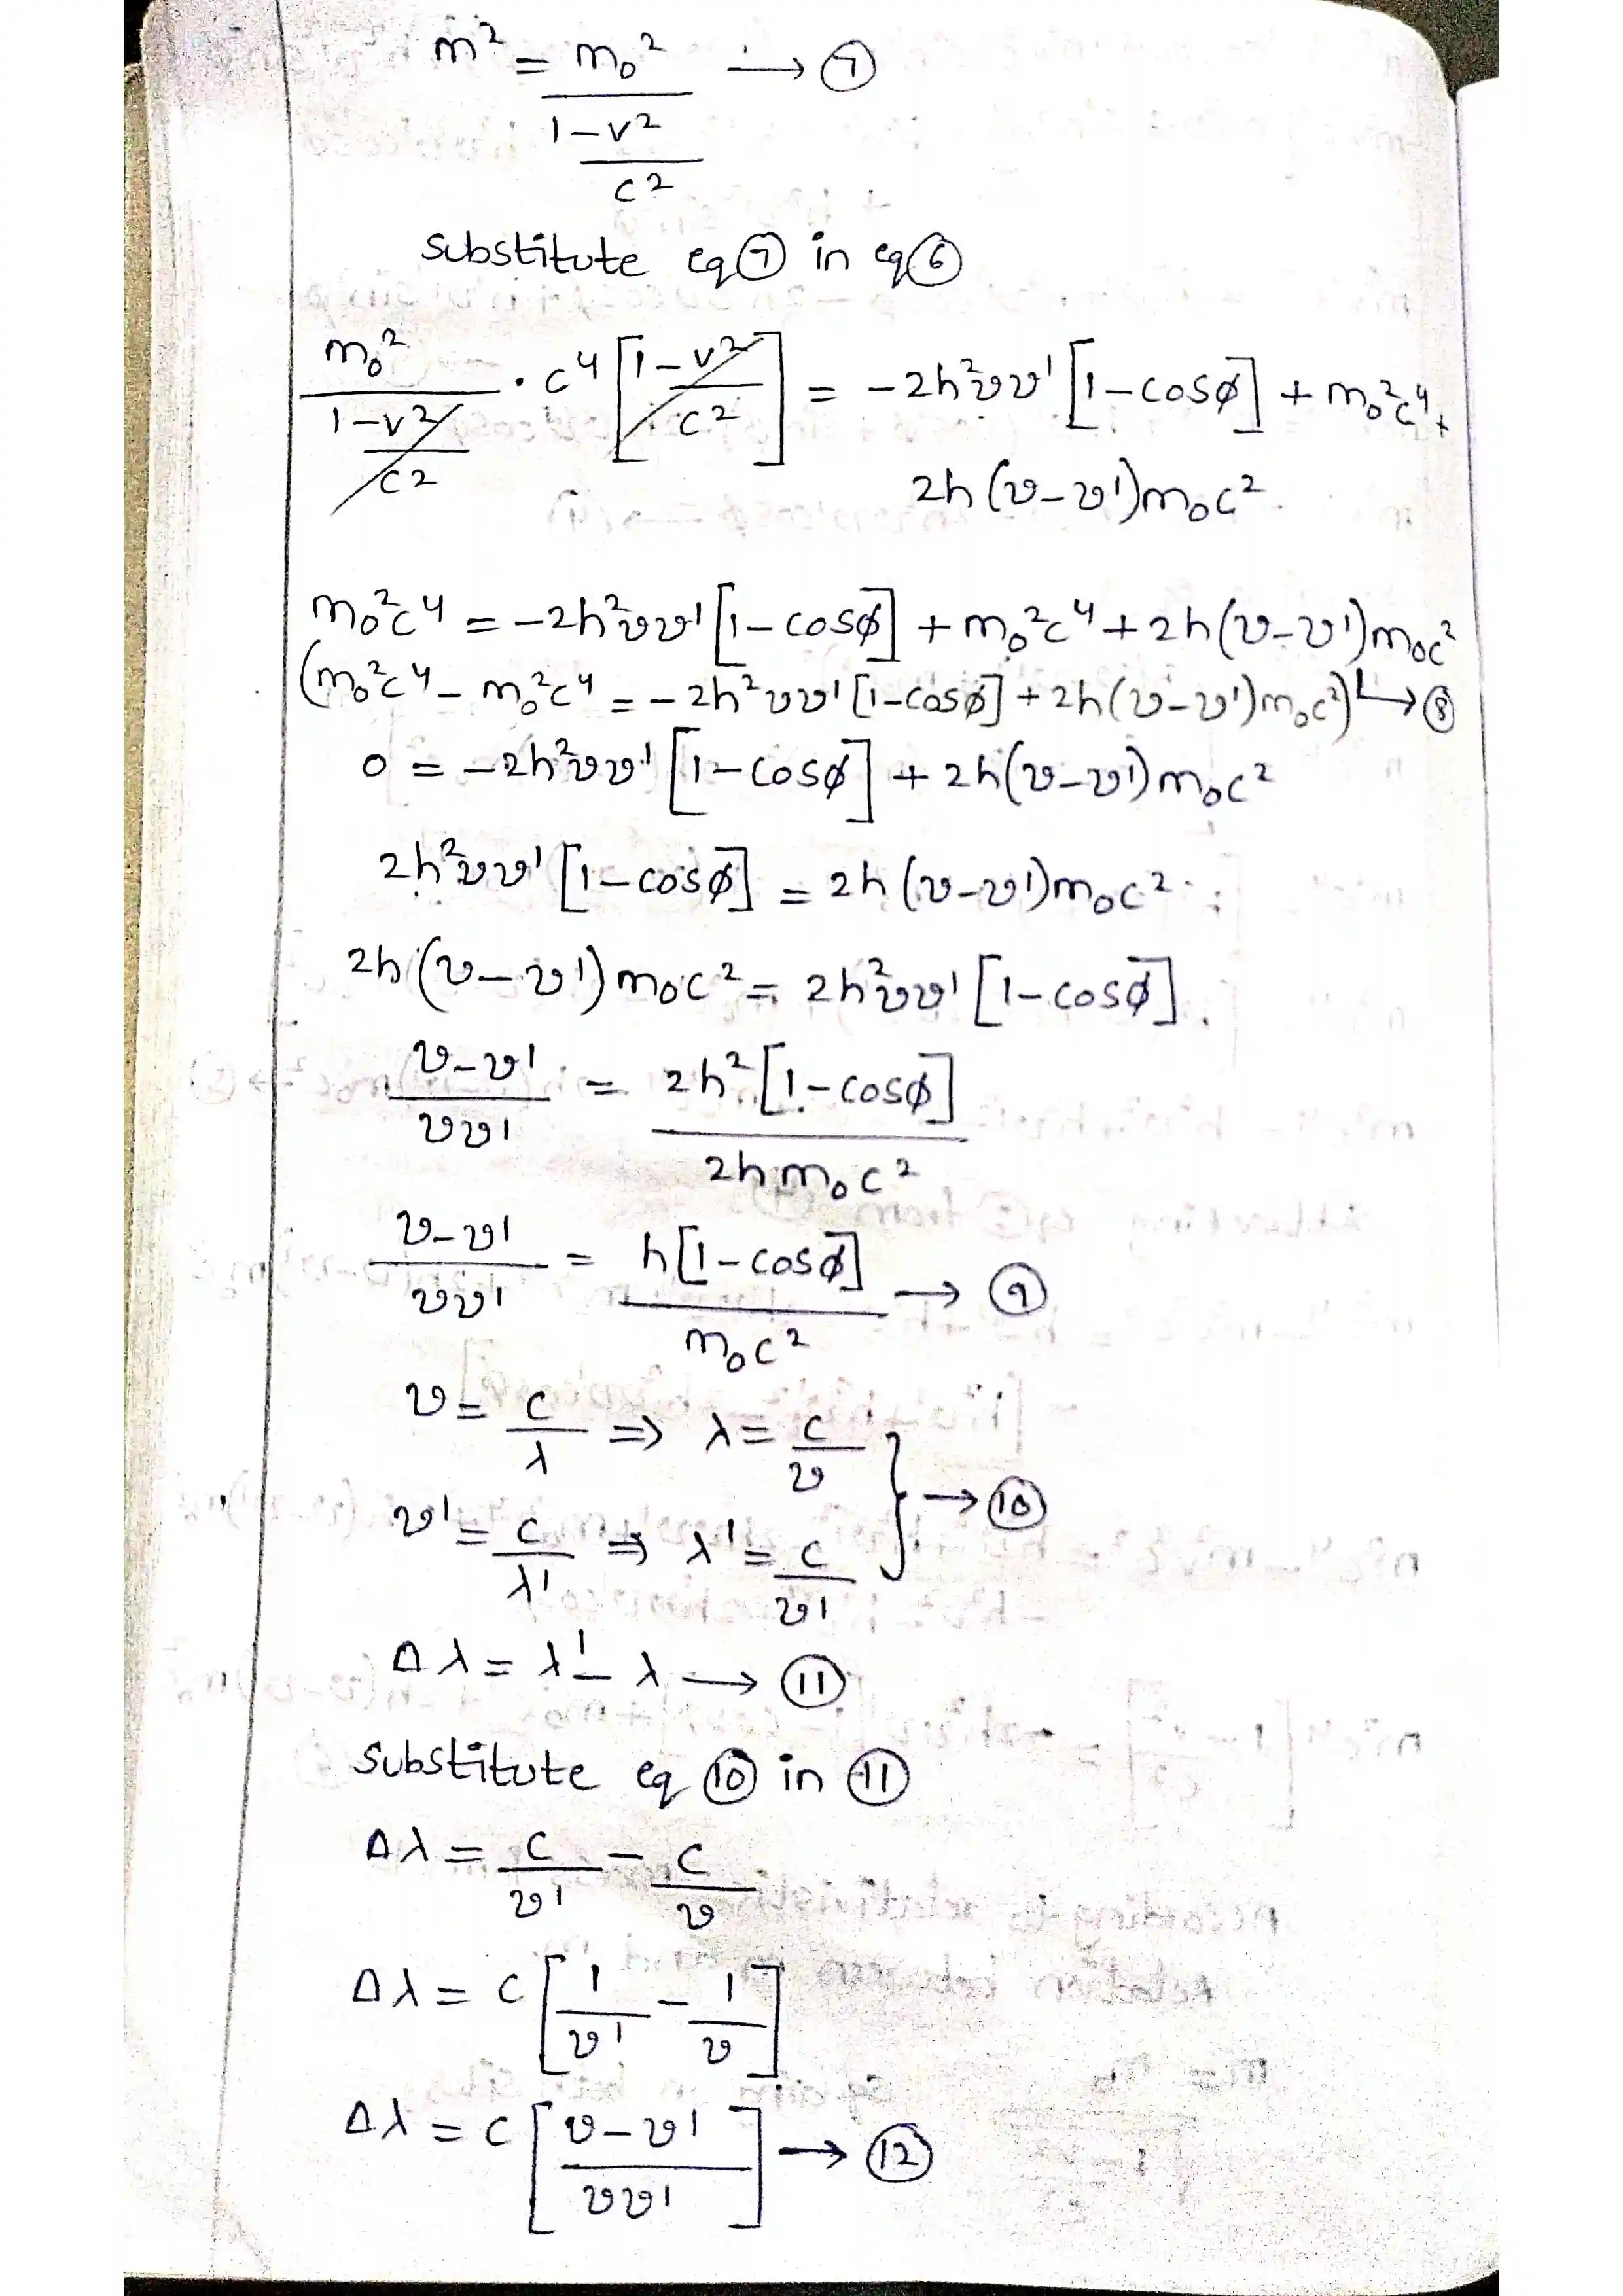 m² = m₀² / (1 - v²/c²) → ⑦
substitute eq ⑦ in eq ⑥
m₀² / (1 - v²/c²) · c⁴ [1 - v²/c²] = -2h²νν' [1 - cosø] + m₀²c⁴ +
2h (ν - ν')m₀c².
m₀²c⁴ = -2h²νν' [1 - cosø] + m₀²c⁴ + 2h(ν - ν')m₀c²
(m₀²c⁴ - m₀²c⁴ = -2h²νν' [1 - cosø] + 2h(ν - ν')m₀c²) → ⑧
0 = -2h²νν' [1 - cosø] + 2h(ν - ν')m₀c²
2h²νν' [1 - cosø] = 2h (ν - ν')m₀c²
2h (ν - ν')m₀c² = 2h²νν' [1 - cosø].
(ν - ν') / νν' = 2h² [1 - cosø] / 2hm₀c²
(ν - ν') / νν' = h[1 - cosø] / m₀c² → ⑨
ν = c/λ ⇒ λ = c/ν
ν' = c/λ' ⇒ λ' = c/ν' } → ⑩
Δλ = λ' - λ → ⑪
substitute eq ⑩ in ⑪
Δλ = c/ν' - c/ν
Δλ = c [1/ν' - 1/ν]
Δλ = c [(ν - ν') / νν'] → ⑫